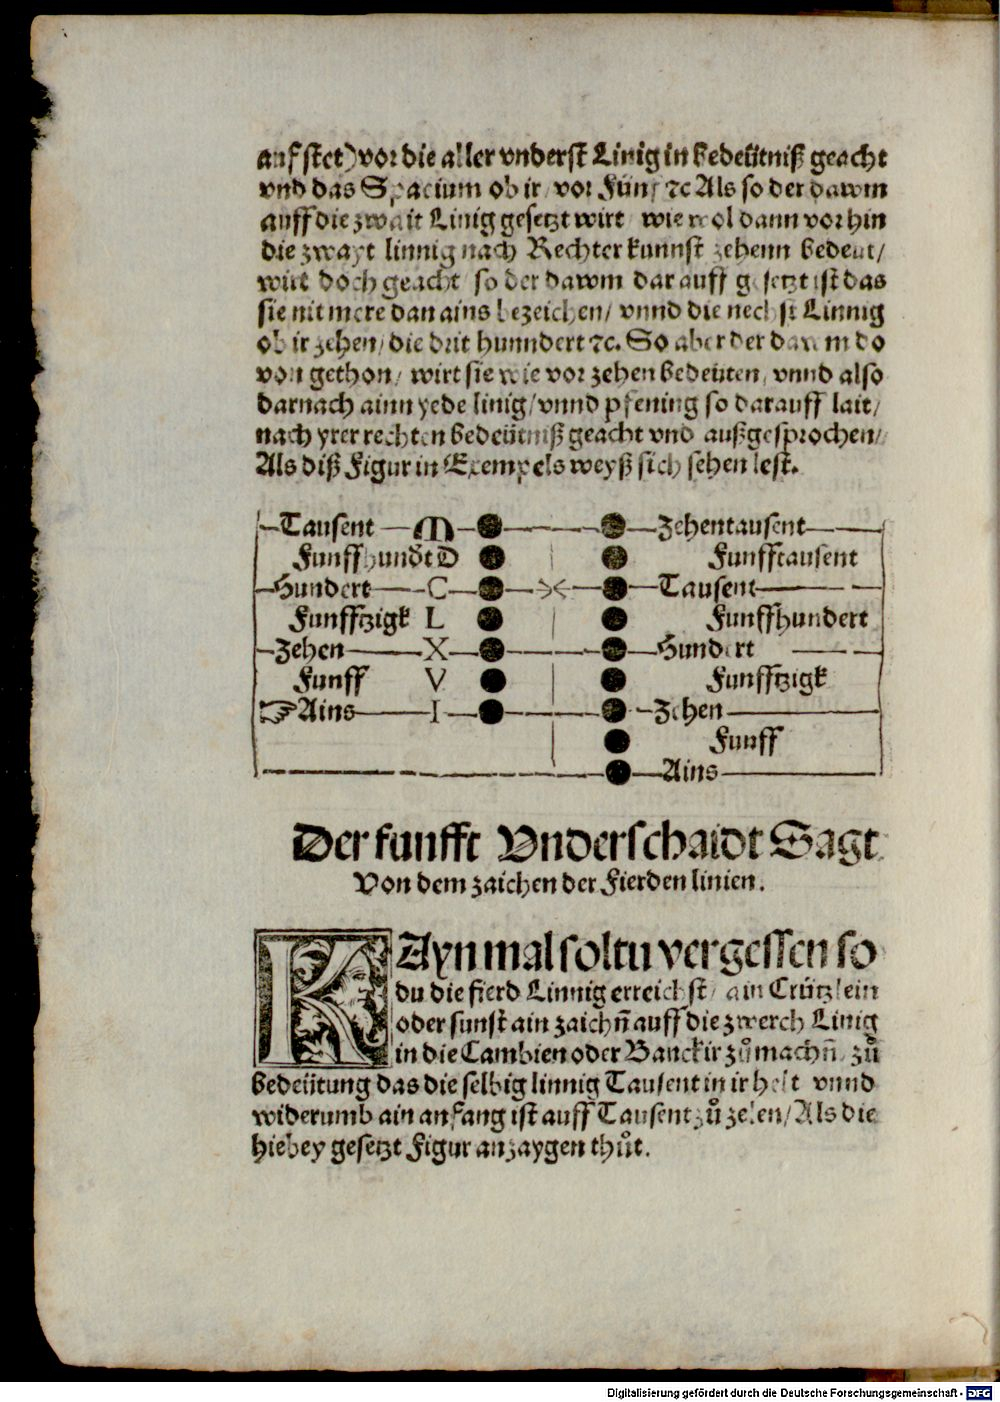 auf stet) vor die aller vnderst Linig in bedeütniß geacht
vnd das Spacium ob ir/ vor Fünf ⁊c Als so der dawm
auff die zwait Linig gesetzt wirt wie wol dann vorhin
die zwayt linnig nach Rechter kunnst zehenn bedeut/
wirt doch geacht so der dawm darauff gesetzt ist das
sie nit mere dan ains bezeichen/ vnnd die nechst Linnig
ob ir zehen/ die drit hunndert ⁊c. So aber der dawm do
von gethon/ wirt sie wie vor zehen bedeuten/ vnnd also
darnach ainn yede linig/ vnnd pfening so darauff lait/
nach yrer rechten bedeütniß geacht vnd außgesprochen/
Als diß Figur in Exempels weyß sich sehen lest.
Tausent M Zehentausent
Funffhundt D Funfftausent
Hundert C Tausent
Funfftzigk L Funffhundert
Zehen X Hundert
Funff V Funfftzigk
☞ Ains I Zehen
Funff
Ains
Der funfft Vnderschaidt Sagt
Von dem zaichen der Fierden linien.
KAyn mal soltu vergessen so
du die fierd Linnig erreichst/ ain Crützlein
oder sunst ain zaichn̄ auff die zwerch Linig
in die Cambien oder Banckir zůmachn̄/ zů
bedeütung das die selbig linnig Tausent in ir helt vnnd
widerumb ain anfang ist auff Tausent zů zelen/ Als die
hiebey gesetzt Figur anzaygen thůt.
Digitalisierung gefördert durch die Deutsche Forschungsgemeinschaft - DFG